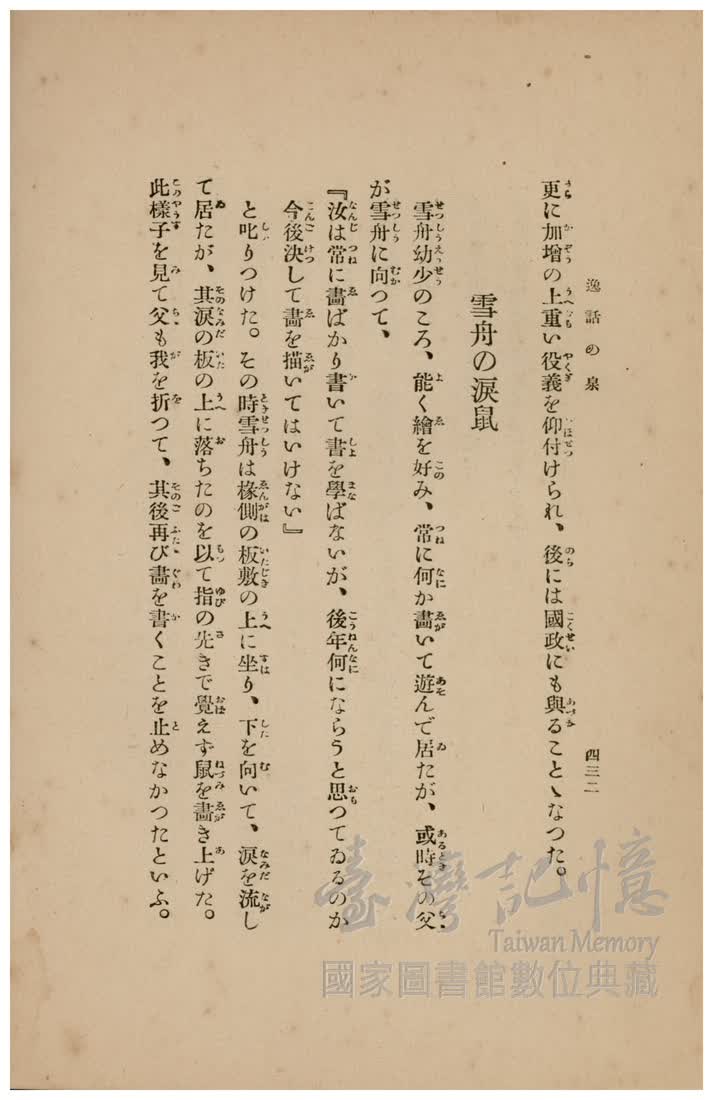 逸話の泉
四三二
更に加增の上重い役義を仰付けられ、後には國政にも與ることゝなつた。
雪舟の淚鼠
雪舟幼少のころ、能く繪を好み、常に何か畵いて遊んで居たが、或時その父
が雪舟に向つて、
『汝は常に畵ばかり書いて書を學ばないが、後年何にならうと思つてゐるのか
今後決して畵を描いてはいけない』
と叱りつけた。その時雪舟は椽側の板敷の上に坐り、下を向いて、淚を流し
て居たが、其淚の板の上に落ちたのを以て指の先きで覺えず鼠を畵き上げた。
此樣子を見て父も我を折つて、其後再び畵を書くことを止めなかつたといふ。
臺灣記憶
Taiwan Memory
國家圖書館數位典藏